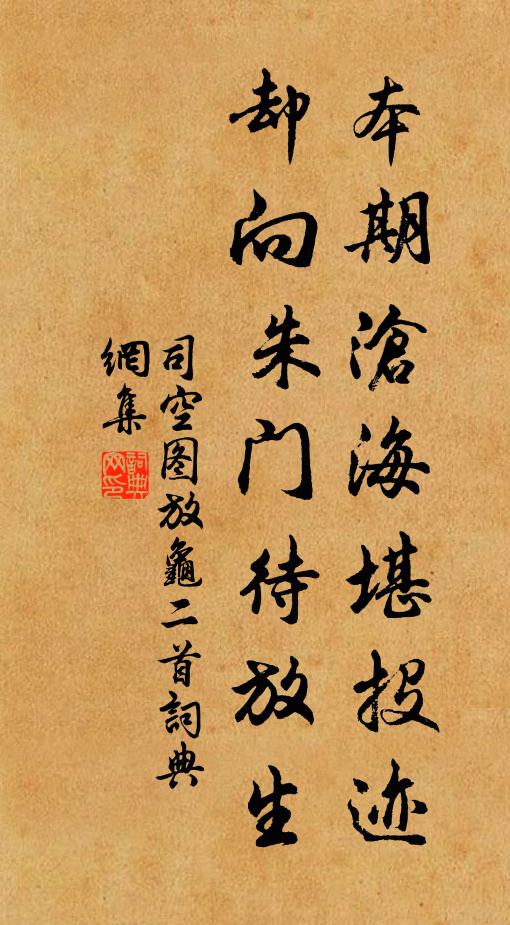 本期滄海堪投迹
却向朱门待放生
司空图放龜二首詞典
網集
詞典
网印